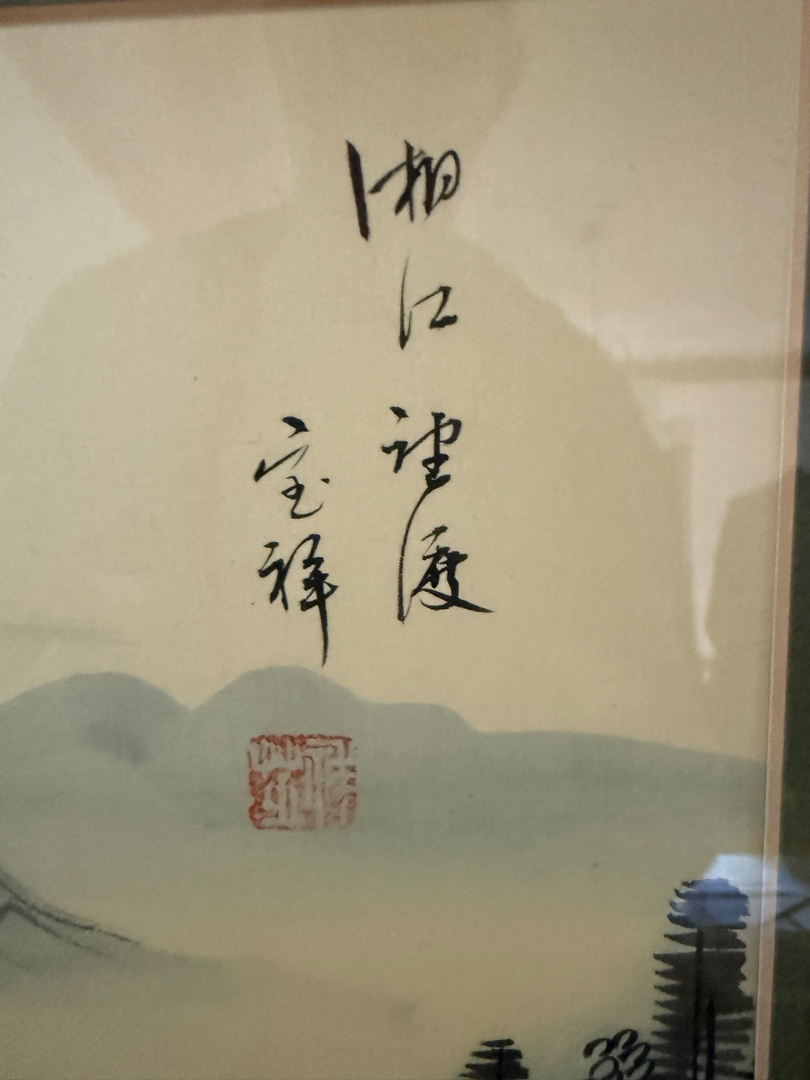 湘江望渡
宝祥